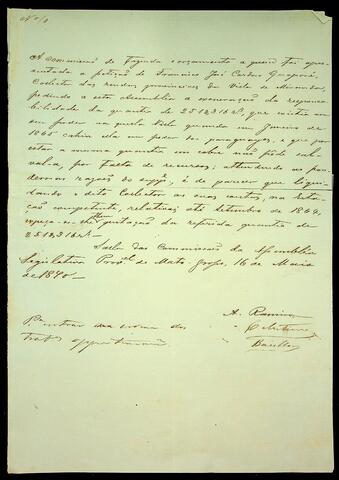 A Commissão de Fazenda e orçamento a quem foi apre-
sentada a petição de Francisco José Cardoso Guaporé,
Collector das rendas provinciaes da Villa de Miranda,
pedindo a esta Assembléa a exoneração da responsa-
bilidade da quantia de 251$231 rs, que existia em
seu poder na quella Villa quando em Janeiro de
1865 cahira ella em poder dos paraguayos, e que por
estar a mesma quantia em cobre não pôde sal-
val-a, por falta de recursos; attendendo as pon-
derosas razões do supp.e, é de parecer que liqui-
dando o dito Collector as suas contas, na esta-
ção competente, relativas até Setembro de 1864,
se lhe da referida quantia de
251$231 rs.
Sala das Commissões da Assembléa
Legislativa Prov.al de Mato-Grosso, 16 de Maio
de 1870.
A. Ramiro
P.a entrar na ordem dos